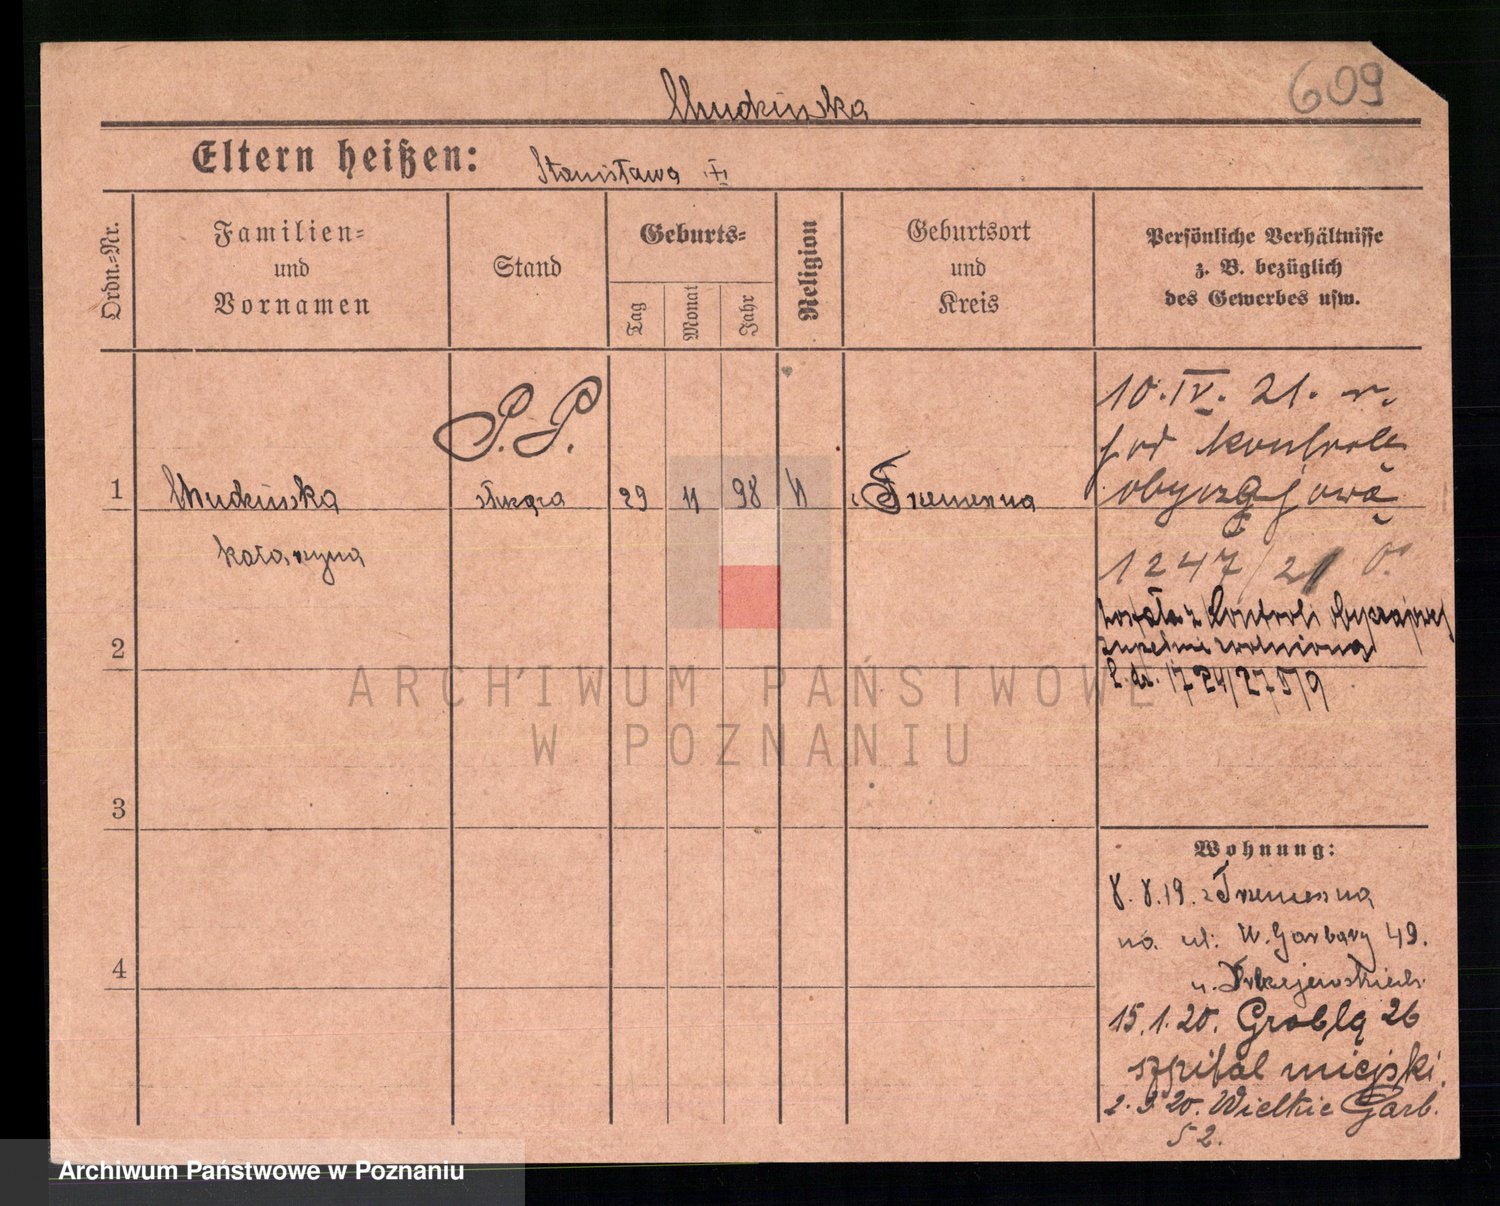 609
Chudzińska
Eltern heißen:
Stanisława
Ordn.-Nr.
Familien-
und
Vornamen
Stand
Geburts-
Tag
Monat
Jahr
Religion
Geburtsort
und
Kreis
Persönliche Verhältnisse
z. B. bezüglich
des Gewerbes usw.
S.P.
10.IV. 21. r.
pod kontrolą
obyczajową
1247/21
1
Chudzińska
służąca
29
11
98
Katarzyna
została z Kontroli obyczajowej
zupełnie zwolniona
L. dz.
2
3
4
Wohnung:
8.8.19. z
na ul. W. Garbary 49.
u.
15.1.20. Groblą 26
szpital miejski.
2.3.20. Wielkie Garb.
52.
ARCHIWUM PAŃSTWOWE
W POZNANIU
Archiwum Państwowe w Poznaniu